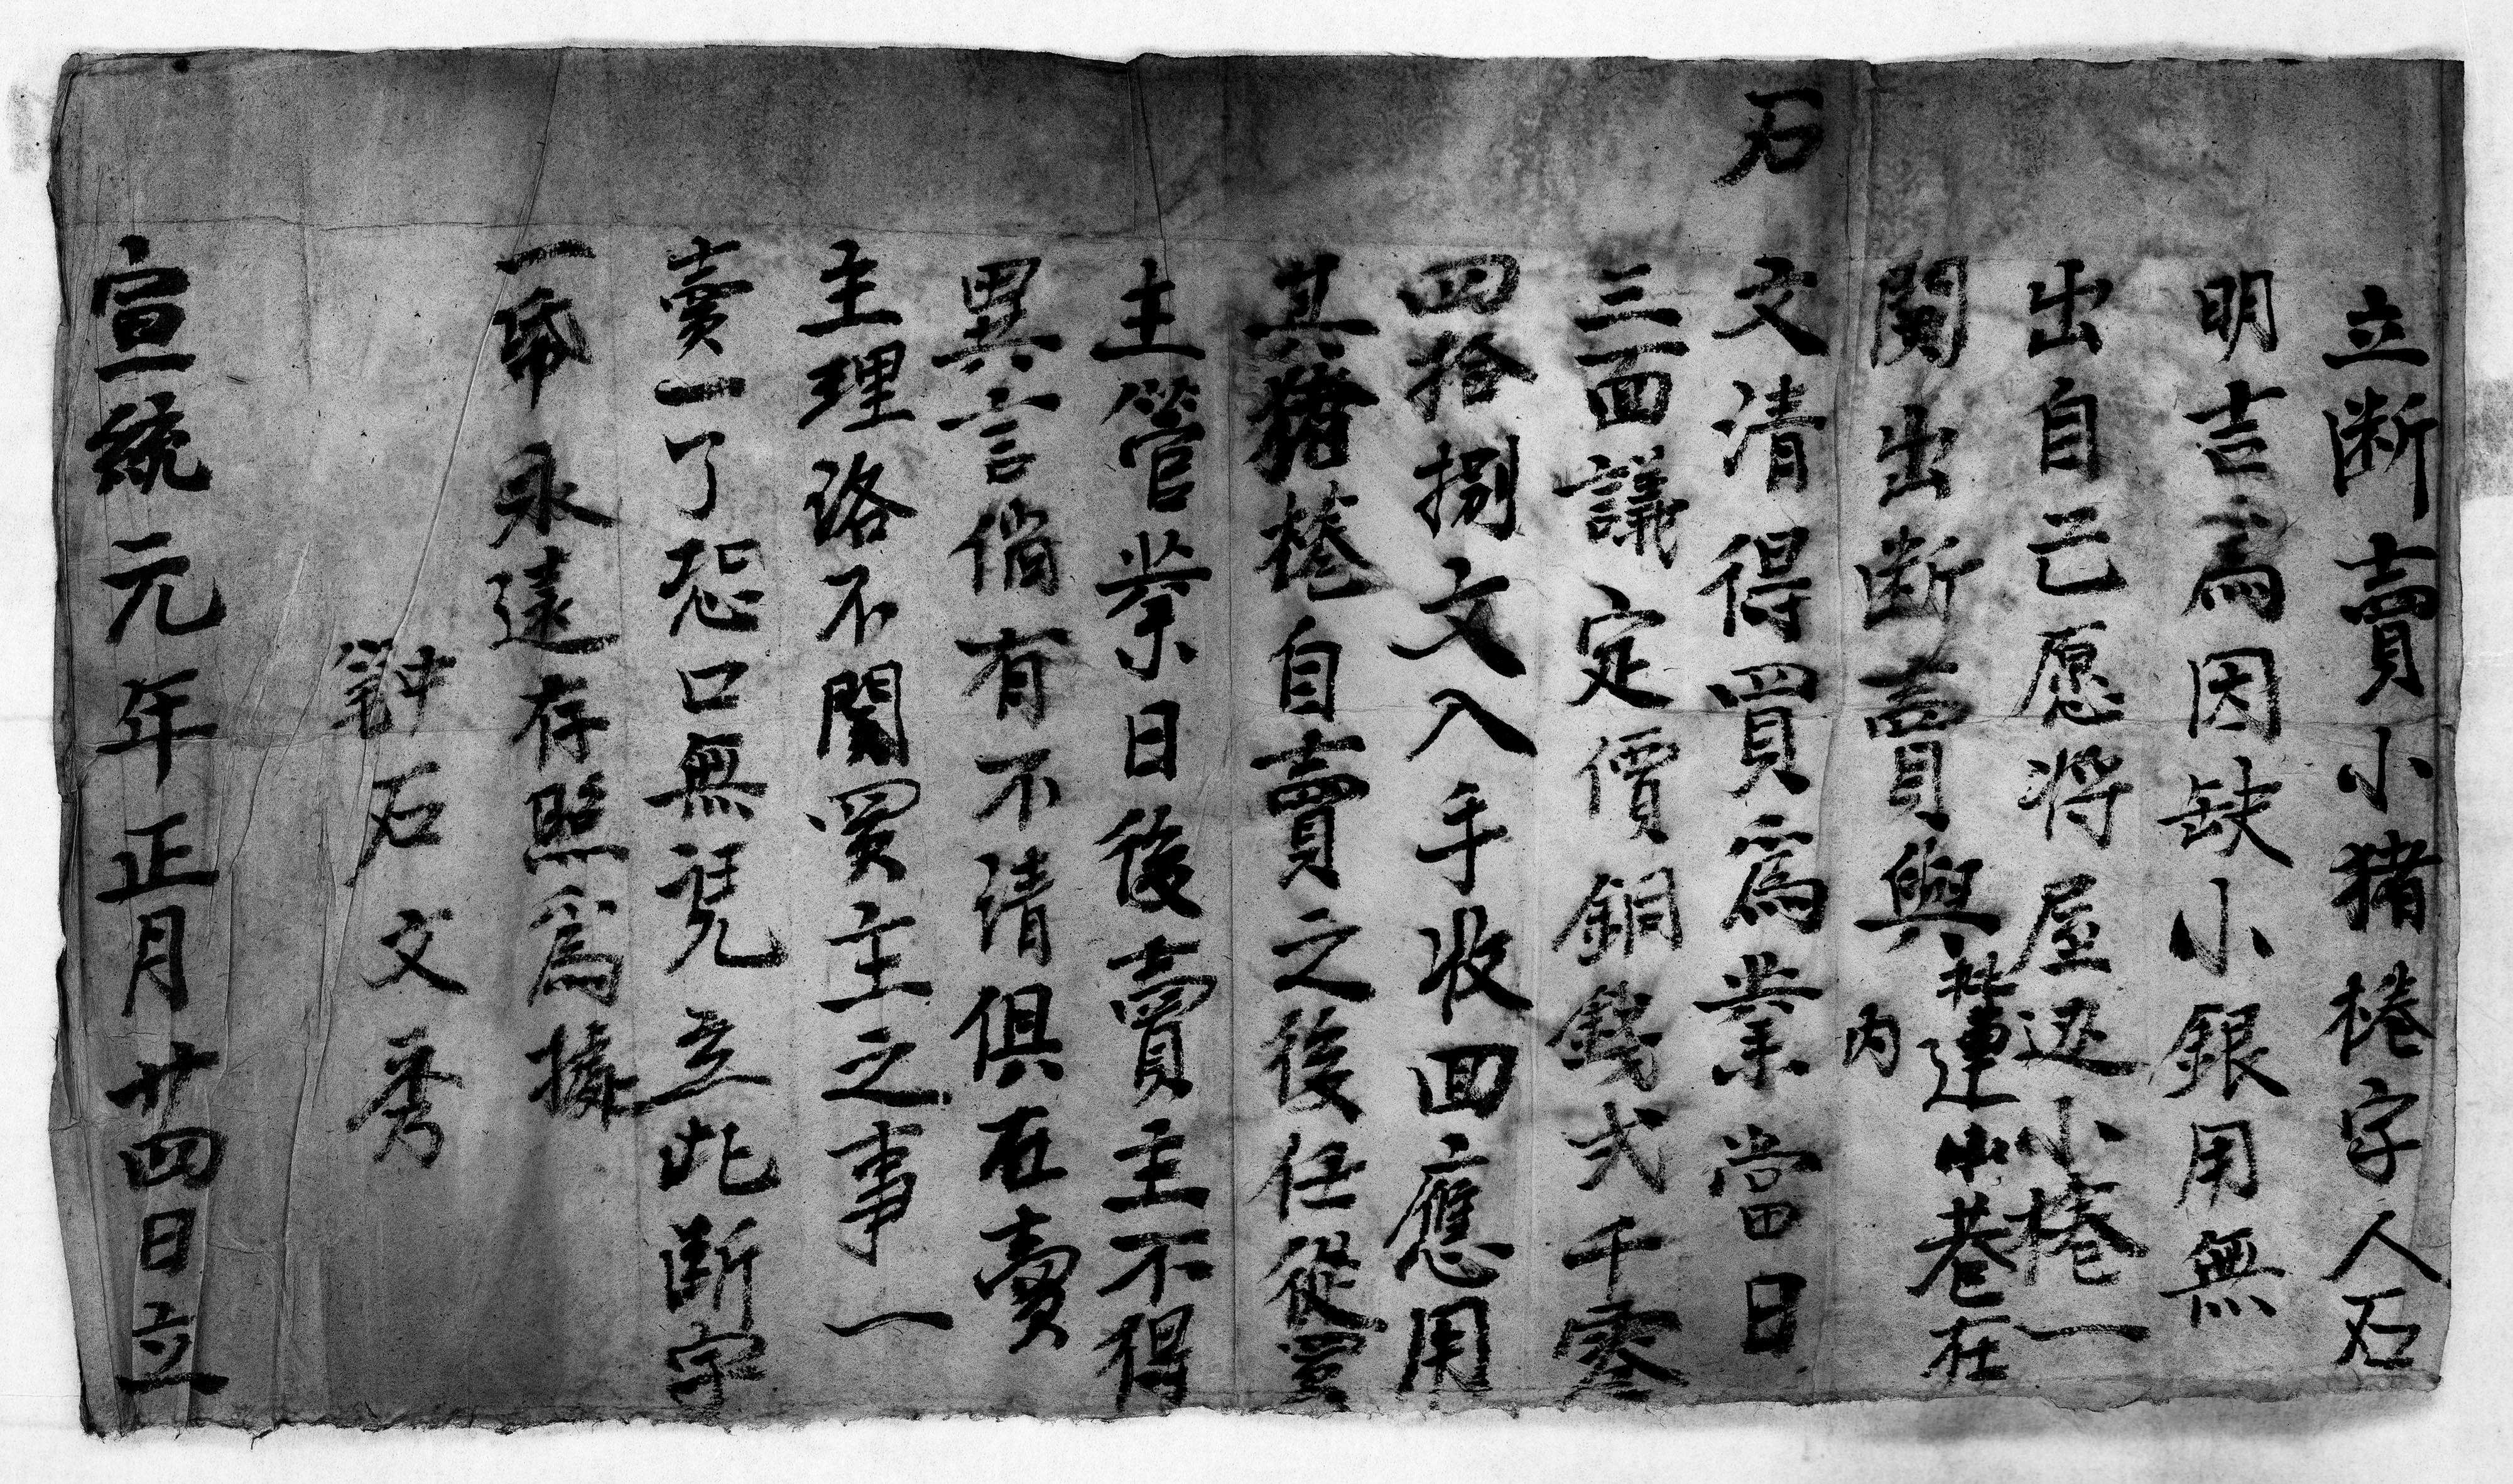 立断賣小猪棬字人石
明吉爲因缺小銀用無
出自己愿将屋边小棬一
間出断賣與
批連中巷在
内
石
文清得買爲業當日
三面議定價銅錢弍千零
四拾捌文入手收回應用
其猪棬自賣之後任從買
主管業日後賣主不得
異言倘有不清俱在賣
主理洛不関買主之事一
賣一了恐口無凭立此断字
一帋永遠存照爲據
中筆石文秀
宣統元年正月廿四日立